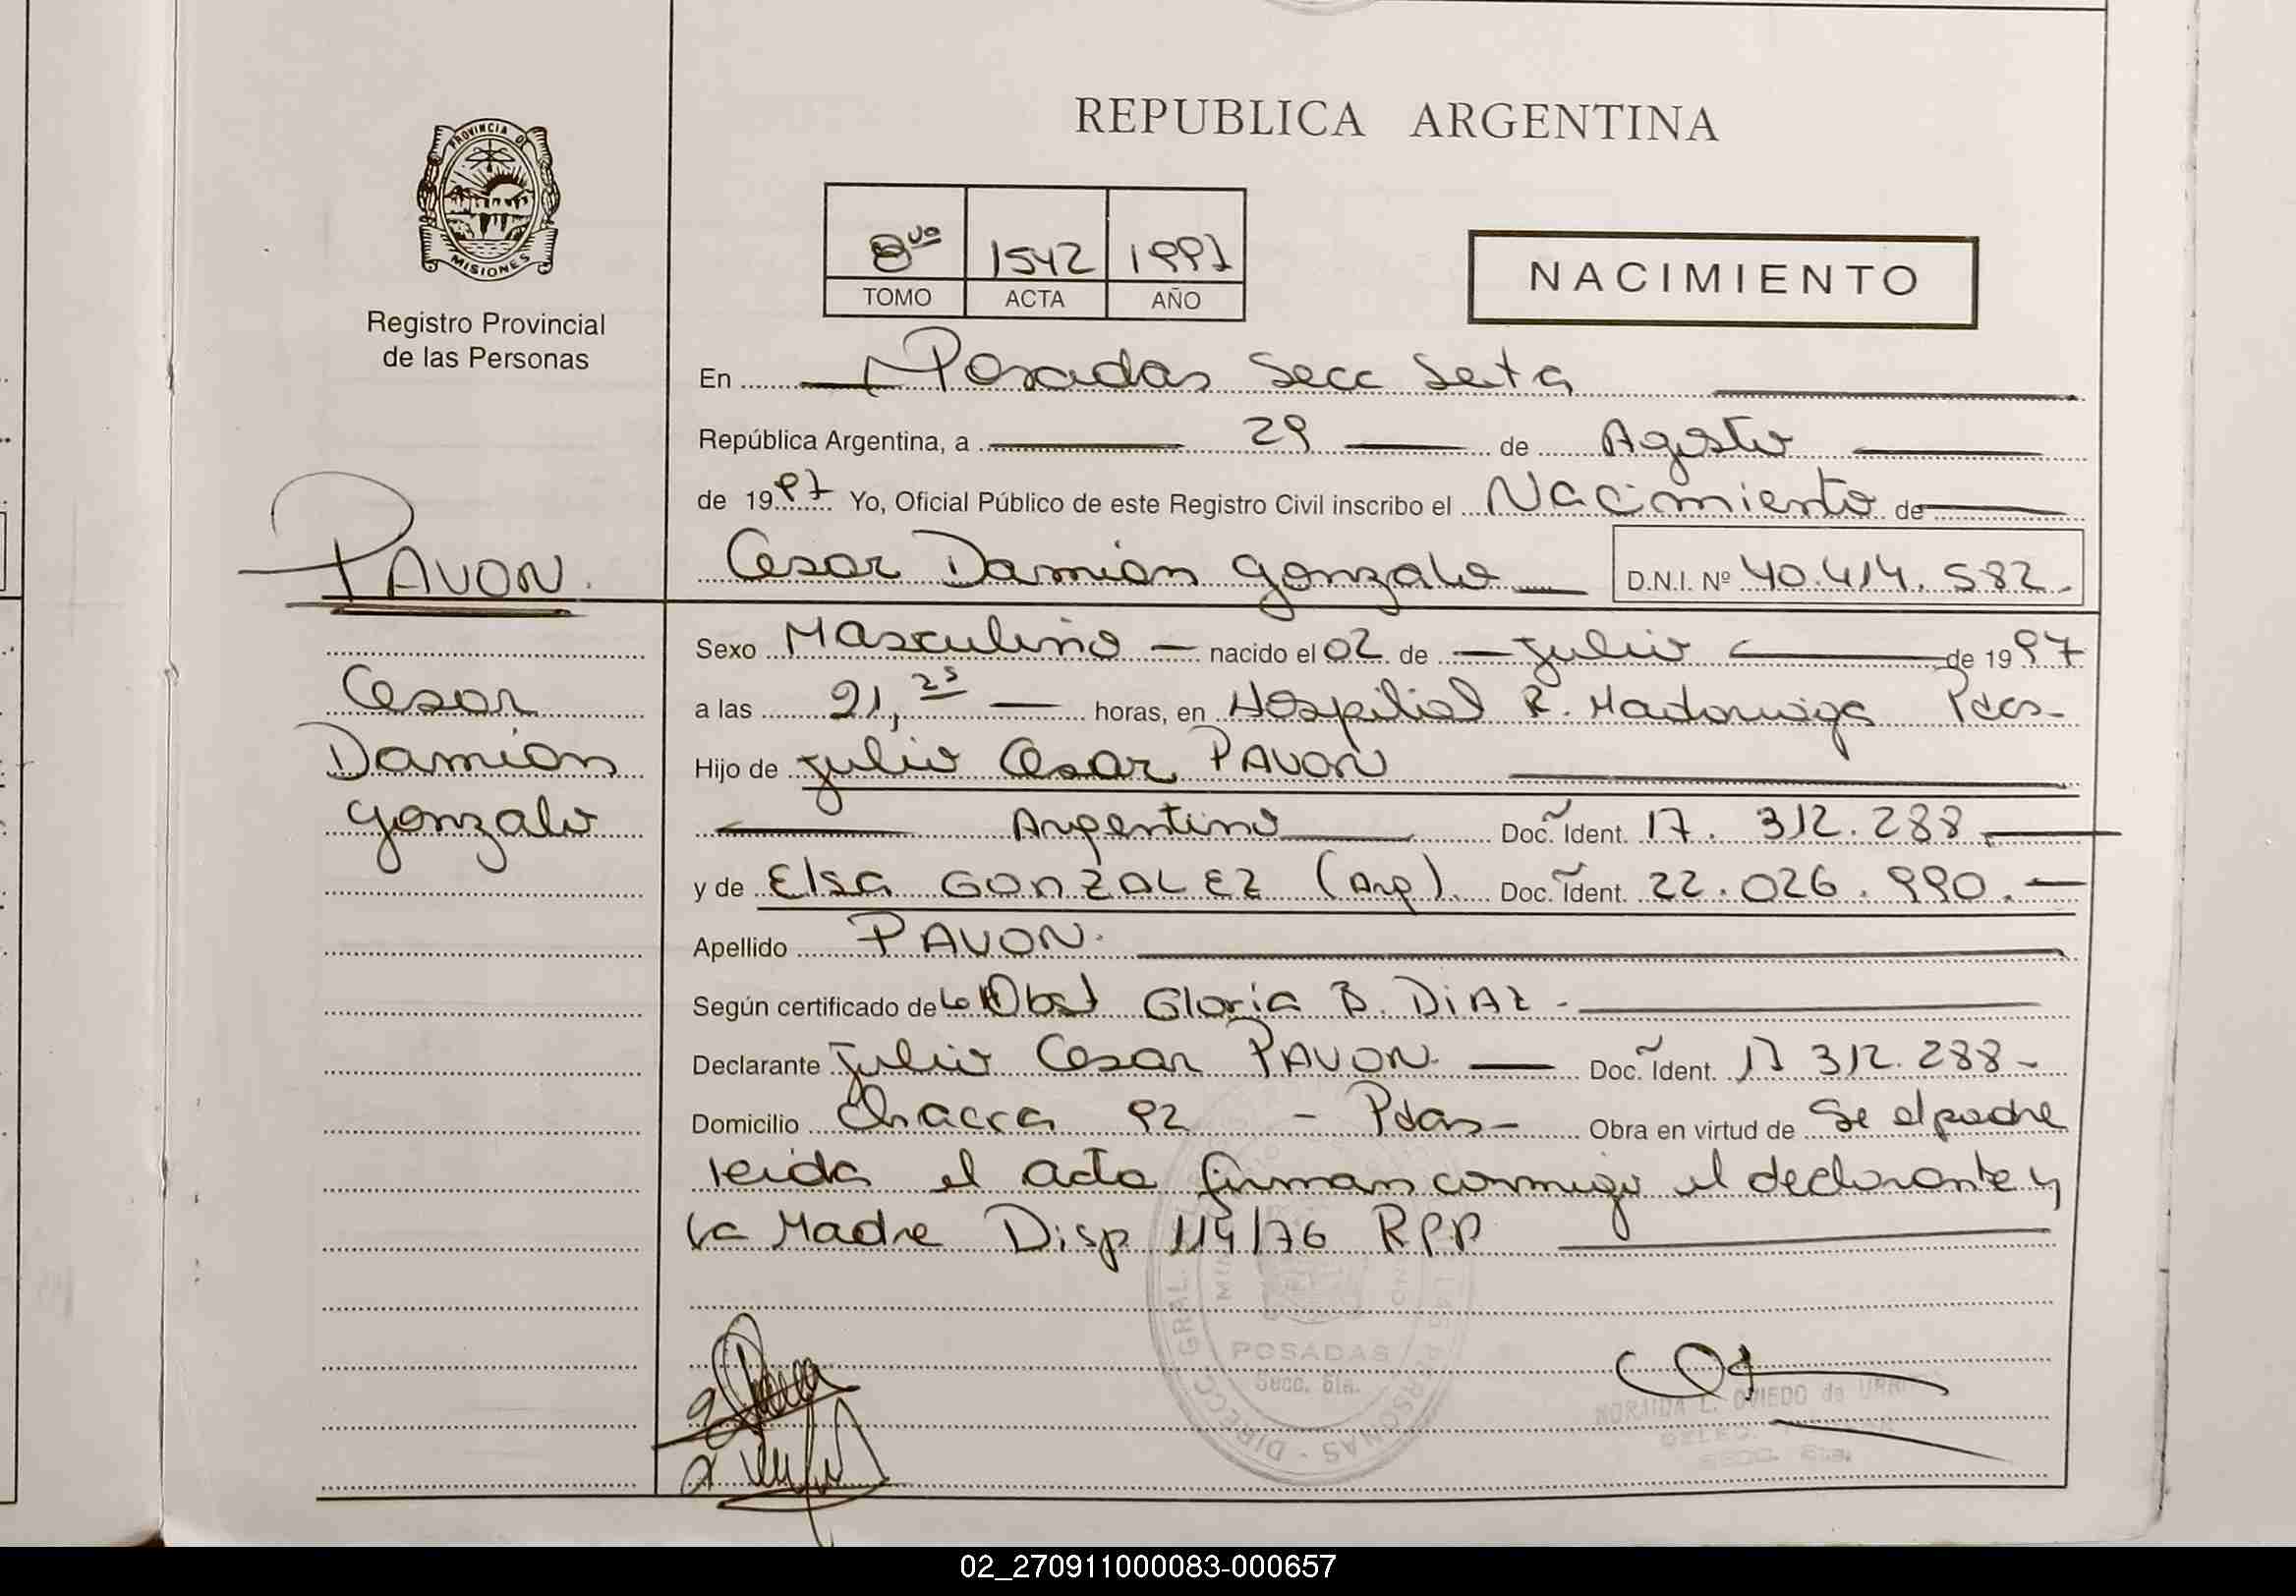 PROVINCIA DE
MISIONES
Registro Provincial
de las Personas
REPUBLICA ARGENTINA
8vo 1542 1997
TOMO ACTA AÑO
NACIMIENTO
En Posadas Secc Sexta
República Argentina, a 29 de Agosto
de 1997 Yo, Oficial Público de este Registro Civil inscribo el Nacimiento de
PAVON.
Cesar Damian Gonzalo D.N.I. Nº 40.414.582.
Cesar
Damian
Gonzalo
Sexo Masculino nacido el 02 de Julio de 1997
a las 21,25 horas, en Hospital R. Madariaga Pdas
Hijo de Julio Cesar PAVON
Argentino Doc. Ident. 17.312.288
y de Elsa GONZALEZ (Arg). Doc. Ident. 22.026.990.
Apellido PAVON.
Según certificado de la Obst Gloria B. DIAZ -
Declarante Julio Cesar PAVON Doc. Ident. 17 312.288-
Domicilio Chacra 92 - Pdas- Obra en virtud de Se el padre
leida el acta firman conmigo el declarante y
la Madre Disp 114/76 RPP
POSADAS
Secc. 6ta.
OVIEDO de
SECC. 6ta.
02_270911000083-000657